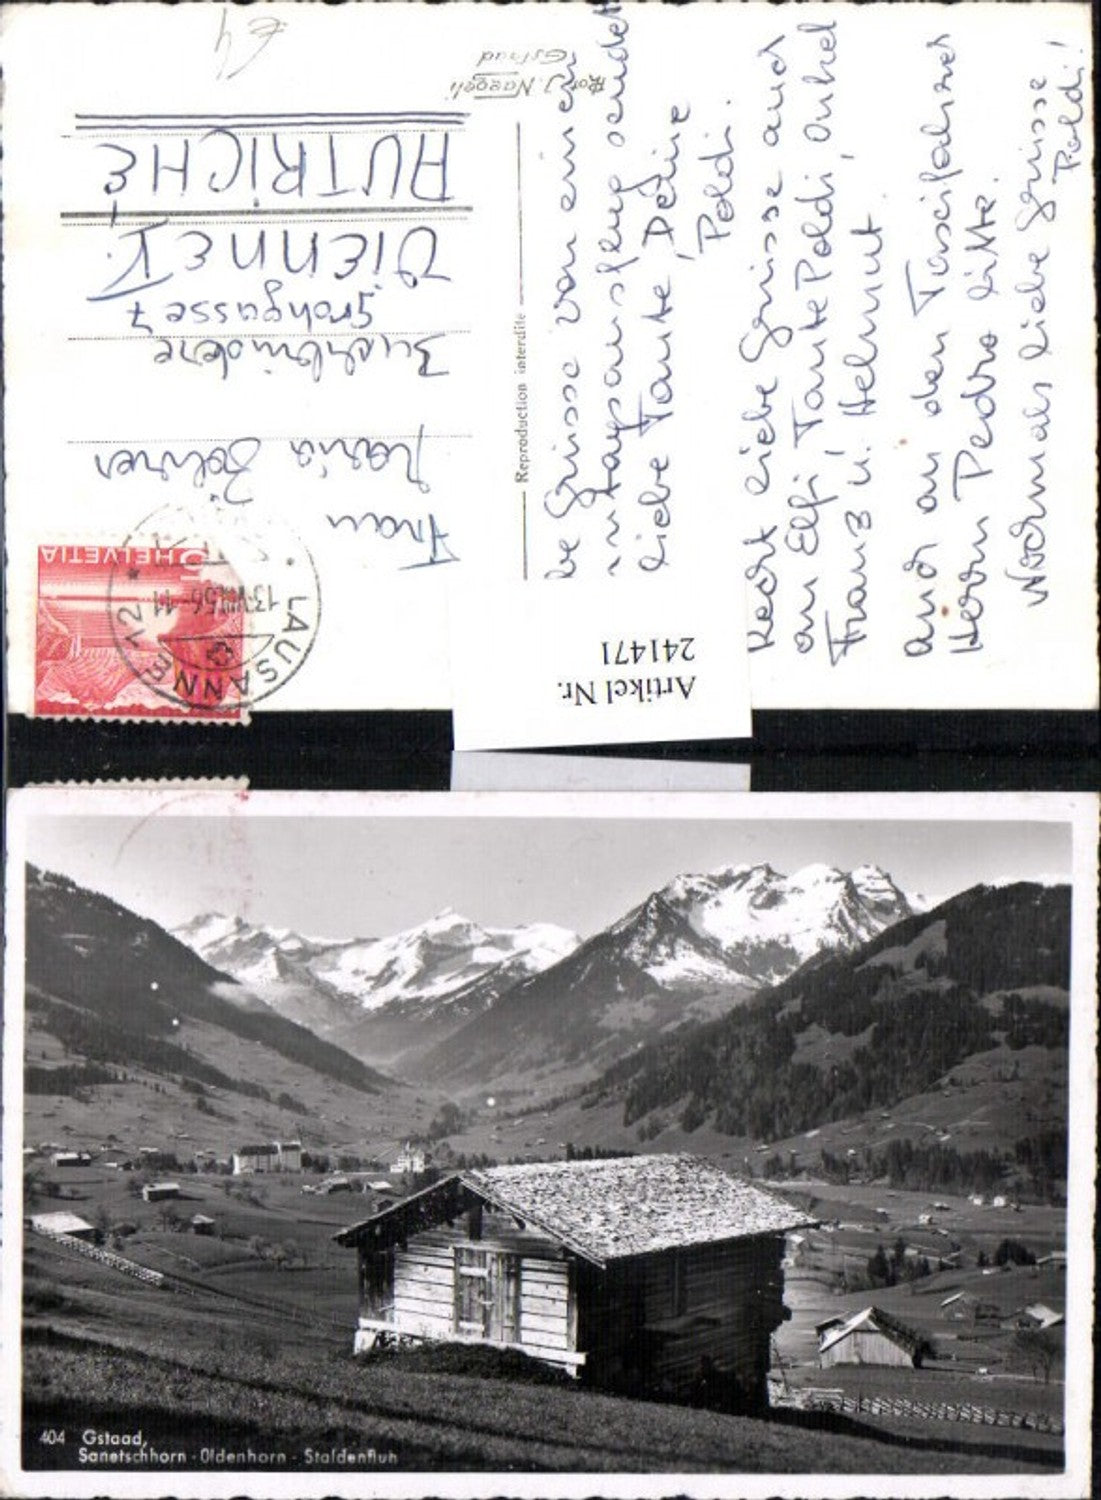 be Grüsse von einem
ingapausflug sendet
liebe Tante, Deine
Poldi.
Recht liebe Grüsse auch
an Elfi, Tante Poldi, Onkel
Franz u. Helmut.
Auch an den
Herrn Pedro bitte.
Nochmals liebe Grüsse
Poldi!
Reproduction interdite
Phot. J. Naegeli
Gstaad
€4
Frau
Maria
Buchbinderei
Grohgasse 7
VIENNE V.
AUTRICHE
HELVETIA
5
LAUSANNE 12
13.VIII.56-11
Artikel Nr.
241471
404 Gstaad,
Sanetschhorn - Oldenhorn - Staldenfluh